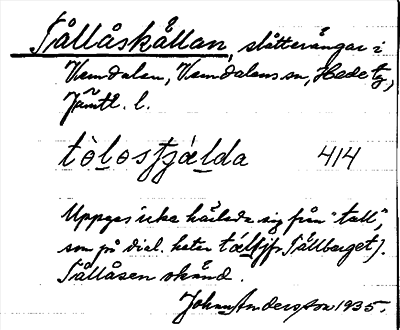 Tållåskållan, slåtterängar i
Vemdalen, Vemdalens sn, Hede tg,
Jämtl. l.
tò̀losţjæ̀lda 414
Uppges icke härleda sig från "tall",
som på dial. heter tɑ́ll (jfr Tållberget).
Tållåsen okänd.
Johan Andersson 1935.